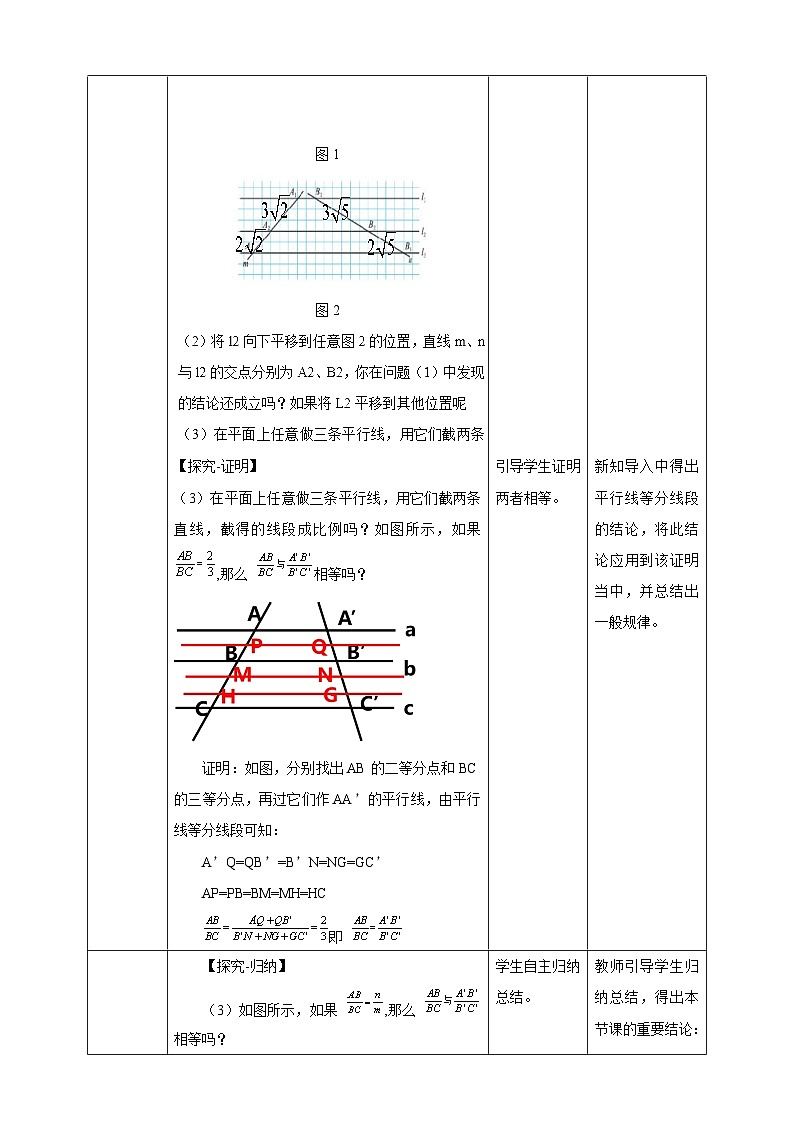 图 1
A₁ B₁ l₁
3√2 3√5
A₂ B₂ l₂
2√2 2√5 B₃ l₃
m n
图 2
（2）将 l2 向下平移到任意图 2 的位置，直线 m、n
与 l2 的交点分别为 A2、B2，你在问题（1）中发现
的结论还成立吗？如果将 L2 平移到其他位置呢
（3）在平面上任意做三条平行线，用它们截两条
【探究-证明】
（3）在平面上任意做三条平行线，用它们截两条
直线，截得的线段成比例吗？如图所示，如果
AB/BC=2/3,那么 AB/BC与A'B'/B'C'相等吗？
A A′ a
P Q
B B′ b
M N
H G
C C′ c
证明：如图，分别找出 AB 的二等分点和 BC
的三等分点，再过它们作 AA＇的平行线，由平行
线等分线段可知：
A＇Q=QB＇=B＇N=NG=GC＇
AP=PB=BM=MH=HC
AB/BC=AQ+QB'/B'N+NG+GC'=2/3即 AB/BC=A'B'/B'C'
引导学生证明
两者相等。
新知导入中得出
平行线等分线段
的结论，将此结
论应用到该证明
当中，并总结出
一般规律。
【探究-归纳】
（3）如图所示，如果 AB/BC=n/m,那么 AB/BC与A'B'/B'C'
相等吗？
学生自主归纳
总结。
教师引导学生归
纳总结，得出本
节课的重要结论：